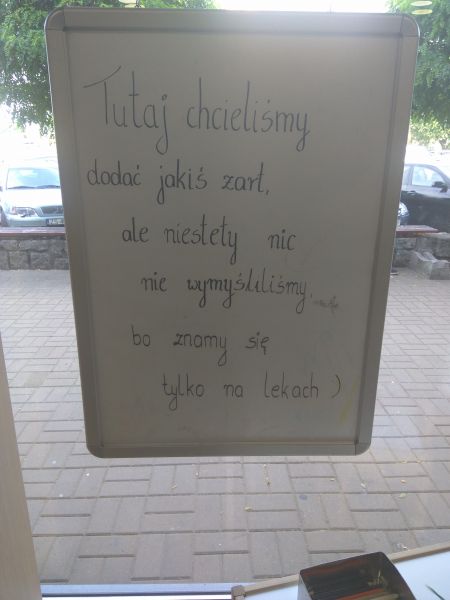 Tutaj chcieliśmy
dodać jakiś żart,
ale niestety nic
nie wymyśliliśmy,
bo znamy się
tylko na lekach )